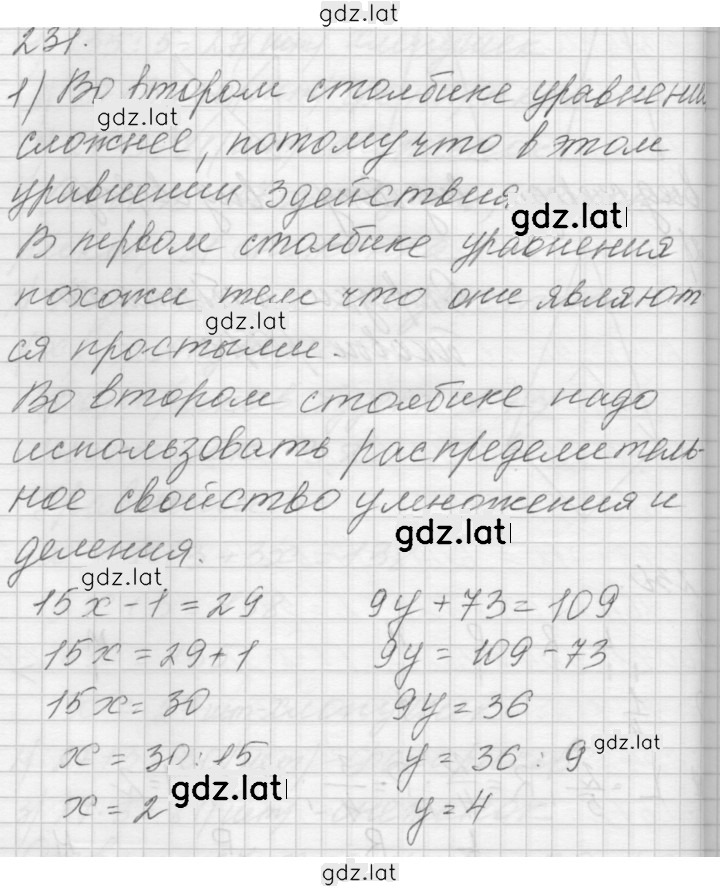 gdz.lat
231.
1) Во втором столбике уравнении
gdz.lat
сложнее, потому что в этом
уравнении 3 действия.
gdz.lat
В первом столбике уравнения
похожи тем что они являют
gdz.lat
ся простыми.
Во втором столбике надо
использовать распределитель-
ное свойство умножения и
gdz.lat
деления.
gdz.lat
15x - 1 = 29 9y + 73 = 109
15x = 29 + 1 9y = 109 - 73
15x = 30 9y = 36
x = 30 : 15 y = 36 : 9
gdz.lat
gdz.lat
x = 2 y = 4
gdz.lat